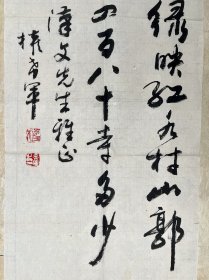 绿映红水村山郭
四百八十寺多少
汉文先生雅正